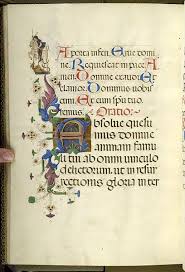 A porta inferi. Erue domi
ne. Requiescat in pace A
men. Domine exaudi. Et
clamor. Dominus vobis
cum. Et cum spiritu tuo
remus. Oratio:
Absolve quesu
mus domine
animam famu
li tui ab omni vinculo
delictorum. ut in resur
rectionis gloria inter